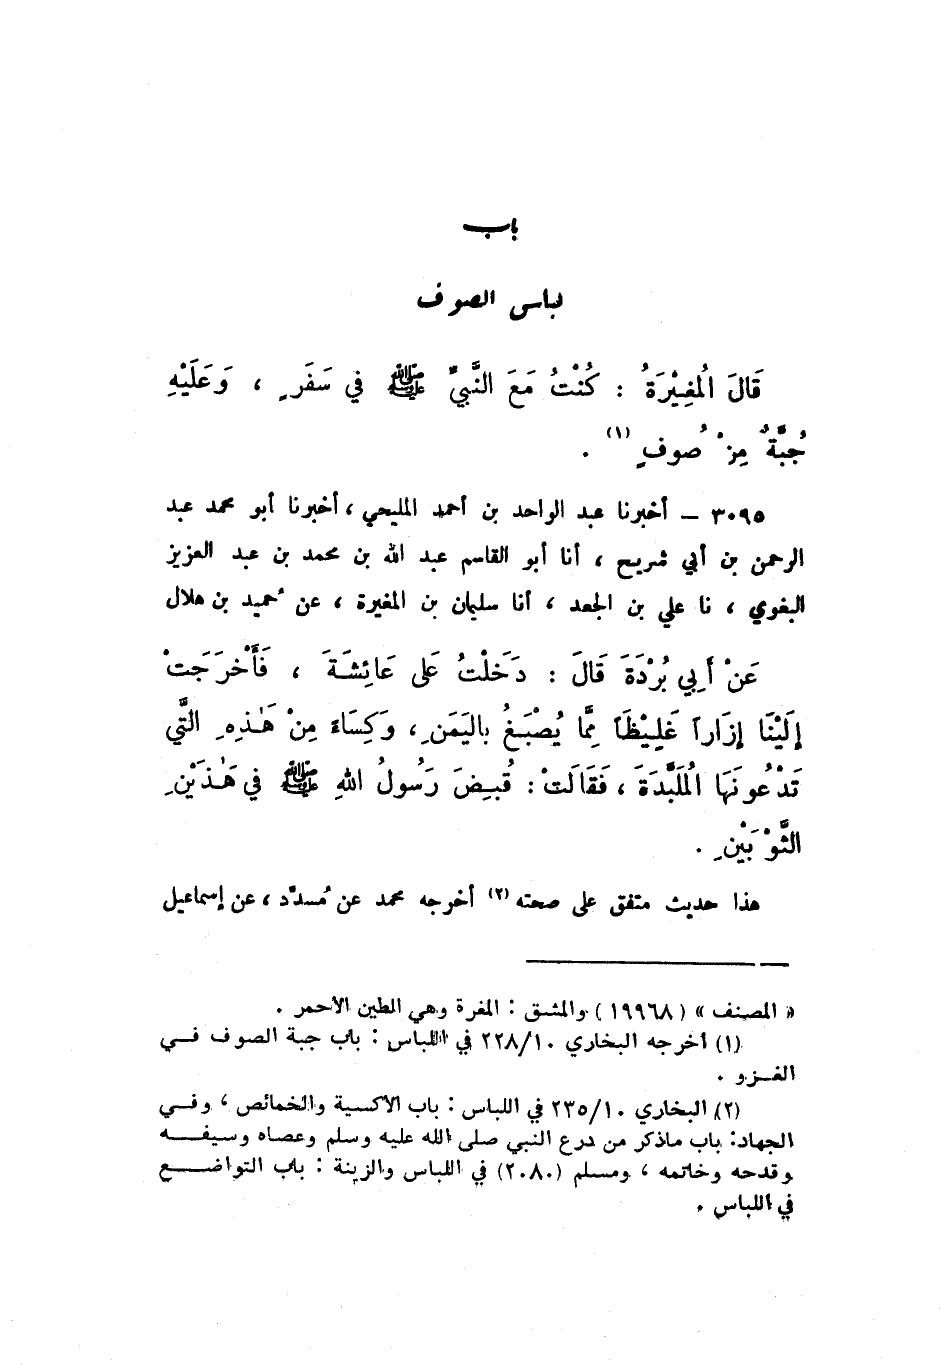 باب
لباس الصوف
قَالَ الْمُغِيْرَةُ : كُنْتُ مَعَ النَّبِيِّ ﷺ فِي سَفَرٍ ، وَعَلَيْهِ
جُبَّةٌ مِنْ صُوفٍ (١) .
٣٠٩٥ – أخبرنا عبد الواحد بن أحمد المليحي ، أخبرنا أبو محمد عبد
الرحمن بن أبي شريح ، أنا أبو القاسم عبد الله بن محمد بن عبد العزيز
البغوي ، نا علي بن الجعد ، أنا سليمان بن المغيرة ، عن حُميد بن هلال
عَنْ أَبِي بُرْدَةَ قَالَ : دَخَلْتُ عَلَى عَائِشَةَ ، فَأَخْرَجَتْ
إِلَيْنَا إِزَاراً غَلِيْظَاً مِمَّا يُصْبَغُ بِاليَمَنِ ، وَكِسَاءً مِنْ هَٰذِهِ الَّتِي
تَدْعُونَهَا الْمُلَبَّدَةَ ، فَقَالَتْ : قُبِضَ رَسُولُ اللهِ ﷺ فِي هَٰذَيْنِ
الثَّوْبَيْنِ .
هذا حديث متفق على صحته (٢) أخرجه محمد عن مُسدَّد ، عن إسماعيل
« المصنف » ( ١٩٩٦٨ ) والمشق : المغرة وهي الطين الأحمر .
(١) أخرجه البخاري ٢٢٨/١٠ في اللباس : باب جبة الصوف في
الغزو .
(٢) البخاري ٢٣٥/١٠ في اللباس : باب الأكسية والخمائص ، وفي
الجهاد: باب ماذكر من درع النبي صلى الله عليه وسلم وعصاه وسيفه
وقدحه وخاتمه ، ومسلم (٢٠٨٠) في اللباس والزينة : باب التواضع
في اللباس .